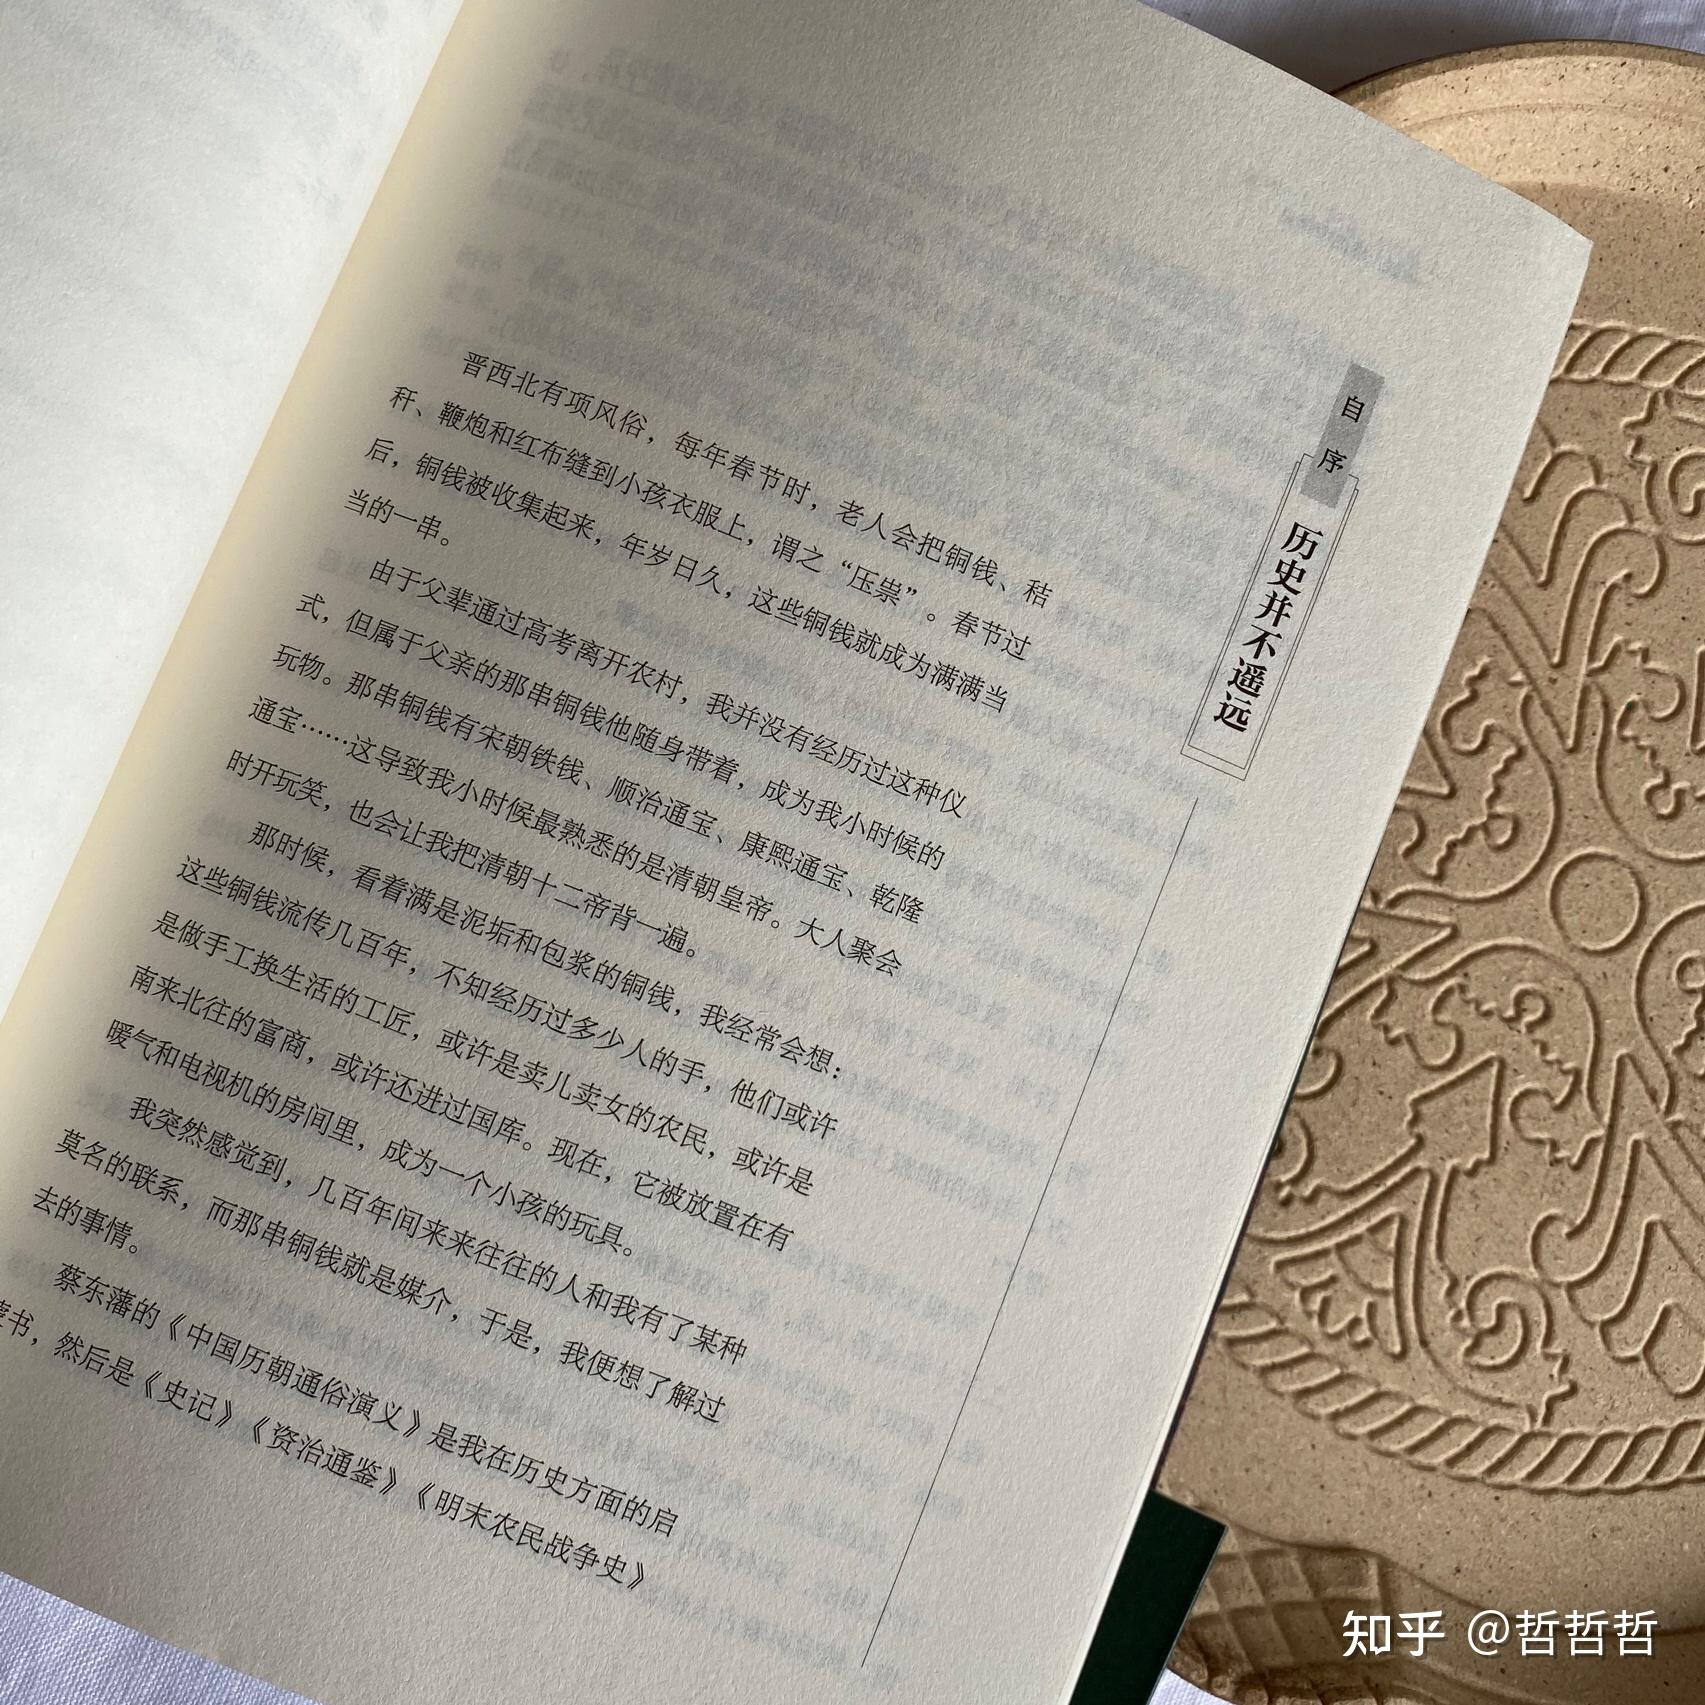 自序
历史并不遥远
晋西北有项风俗，每年春节时，老人会把铜钱、秸
秆、鞭炮和红布缝到小孩衣服上，谓之“压祟”。春节过
后，铜钱被收集起来，年岁日久，这些铜钱就成为满满当
当的一串。
由于父辈通过高考离开农村，我并没有经历过这种仪
式，但属于父亲的那串铜钱他随身带着，成为我小时候的
玩物。那串铜钱有宋朝铁钱、顺治通宝、康熙通宝、乾隆
通宝……这导致我小时候最熟悉的是清朝皇帝。大人聚会
时开玩笑，也会让我把清朝十二帝背一遍。
那时候，看着满是泥垢和包浆的铜钱，我经常会想：
这些铜钱流传几百年，不知经历过多少人的手，他们或许
是做手工换生活的工匠，或许是卖儿卖女的农民，或许是
南来北往的富商，或许还进过国库。现在，它被放置在有
暖气和电视机的房间里，成为一个小孩的玩具。
我突然感觉到，几百年间来来往往的人和我有了某种
莫名的联系，而那串铜钱就是媒介，于是，我便想了解过
去的事情。
蔡东藩的《中国历朝通俗演义》是我在历史方面的启
书，然后是《史记》《资治通鉴》《明末农民战争史》
知乎 @哲哲哲